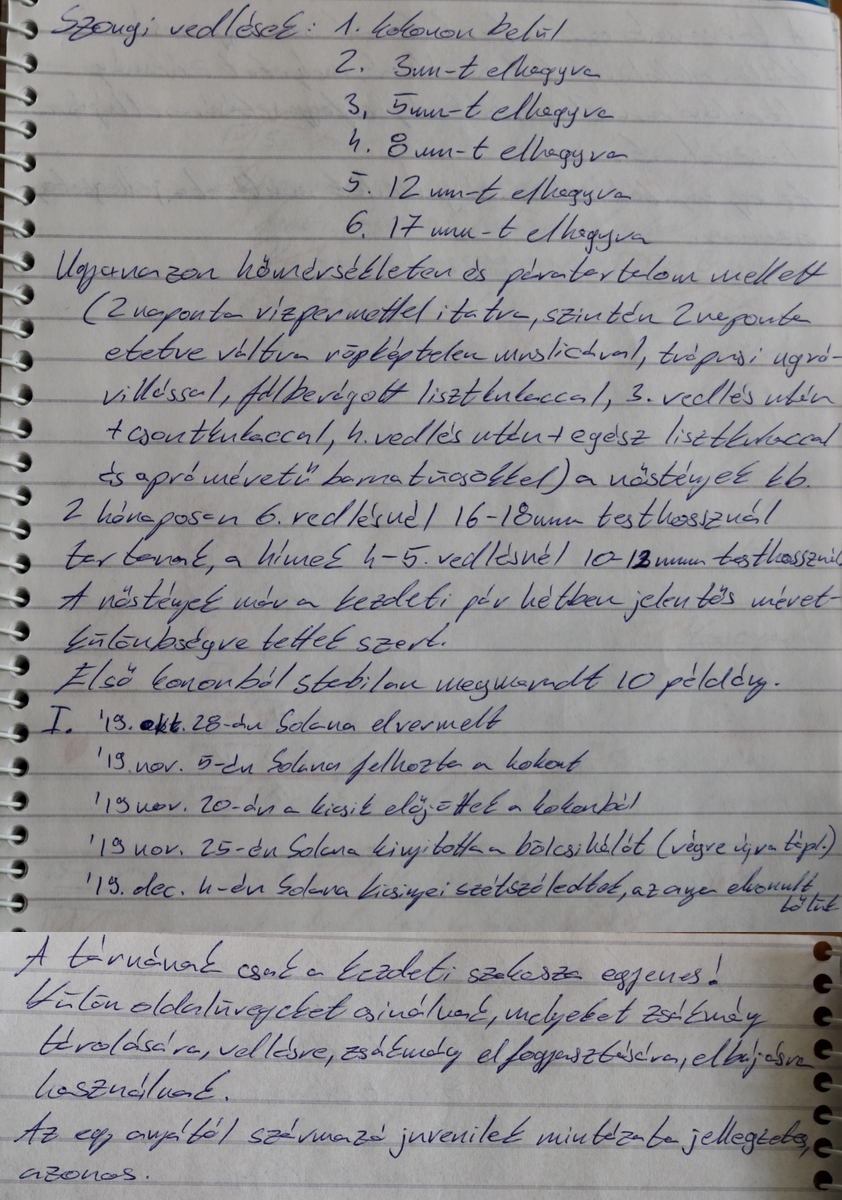 Szongi vedlések: 1. kokonon belül
2. 3mm-t elhagyva
3, 5mm-t elhagyva
4. 8mm-t elhagyva
5. 12mm-t elhagyva
6. 17mm-t elhagyva
Ugyanazon hőmérsékleten és páratartalom mellett
(2 naponta vízpermettel itatva, szintén 2 naponta
etetve váltva röpképtelen muslicával, trópusi ugró-
villással, félbevágott lisztkukaccal, 3. vedlés után
+ csontkukaccal, 4. vedlés után + egész lisztkukaccal
és apró méretű barnatücsökkel) a nőstények kb.
2 hónaposan 6. vedlésnél 16-18mm testhossznál
tartanak, a hímek 4-5. vedlésnél 10-12mm testhossznál
A nőstények már a kezdeti pár hétben jelentős méret-
különbségre tettek szert.
Első kokonból stabilan megmaradt 10 példány.
I. '19. okt. 28-án Solana elvermelt
'19. nov. 5-én Solana felhozta a kokont
'19 nov. 20-án a kicsik előjöttek a kokonból
'19 nov. 25-én Solana kinyitotta a bölcsihálót (végre újra tápl.)
'19. dec. 4-én Solana kicsinyei szétszéledtek, az anya elvonult
tőlük
A tárnának csak a kezdeti szakasza egyenes!
Külön oldalüregeket csinálnak, melyeket zsákmány
tárolására, vedlésre, zsákmány elfogyasztására, elbújásra
használnak.
Az egy anyától származó juvenilek mintázata jellegzetes,
azonos.